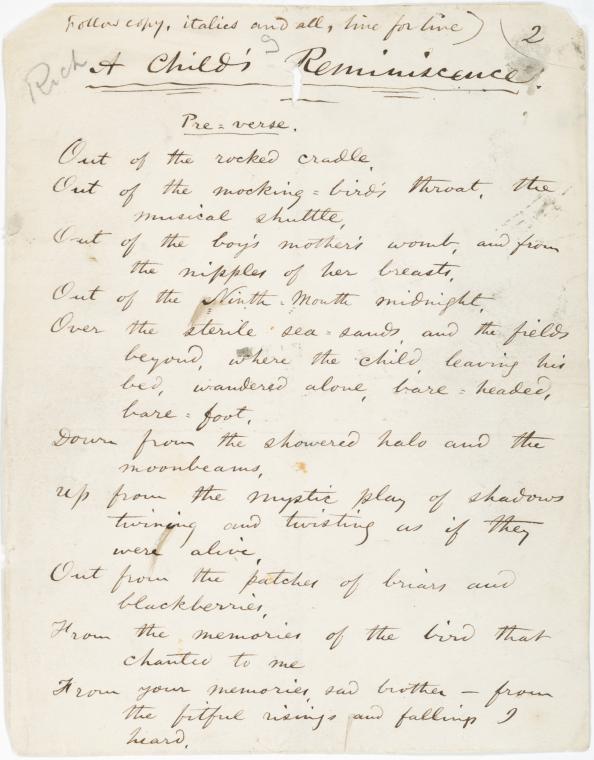 Follow copy, italics and all, line for line)
2
Rich
9
A Child's Reminiscence.
Pre=verse.
Out of the rocked cradle,
Out of the mocking=bird's throat, the
musical shuttle,
Out of the boy's mother's womb, and from
the nipples of her breasts,
Out of the Ninth-Month midnight,
Over the sterile sea=sands and the fields
beyond, where the child, leaving his
bed, wandered alone, bare=headed,
bare=foot,
Down from the showered halo and the
moonbeams,
Up from the mystic play of shadows
twining and twisting as if they
were alive,
Out from the patches of briars and
blackberries,
From the memories of the bird that
chanted to me
From your memories, sad brother — from
the fitful risings and fallings I
heard,